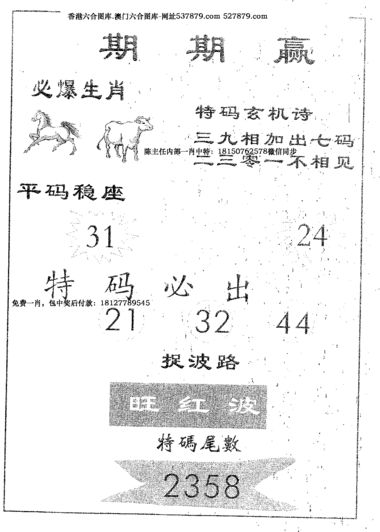 香港六合图库.澳门六合图库-网址537879.com 527879.com
期 期 赢
必爆生肖
特码玄机诗
三九相加出七码
陈主任内部一肖中特：18150762578微信同步
二三零一不相见
平码稳座
31 24
特码必出
免费一肖，包中奖后付款：18127789545
21 32 44
捉波路
旺红波
特碼尾數
2358